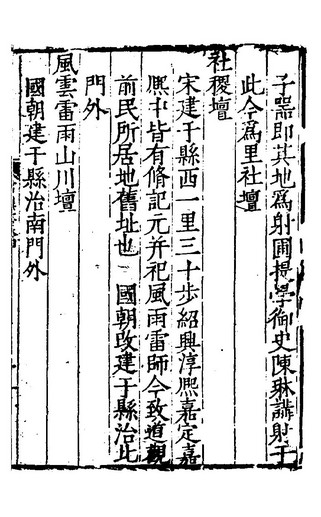 子器即其地爲射圃提學御史陳琳講射于
此今爲里社壇
社稷壇
宋建于縣西一里三十步紹興淳熙嘉定嘉
熙中皆有脩記元并祀風雨雷師今致道觀
前民所居地舊址也 國朝改建于縣治北
門外
風雲雷雨山川壇
國朝建于縣治南門外